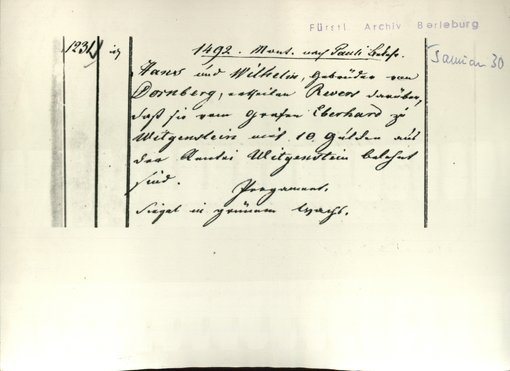 Fürstl. Archiv Berleburg
1231
1492. Mont. nach Pauli bekehr.
Januar 30
Hans und Wilhelm, Gebrüder von
Dörnberg, ertheilen Revers darüber,
daß sie vom Grafen Eberhard zu
Witgenstein mit 10 Gulden aus
der Rentei Witgenstein belehnt
sind. Pergament.
Siegel in grünem Wachs.